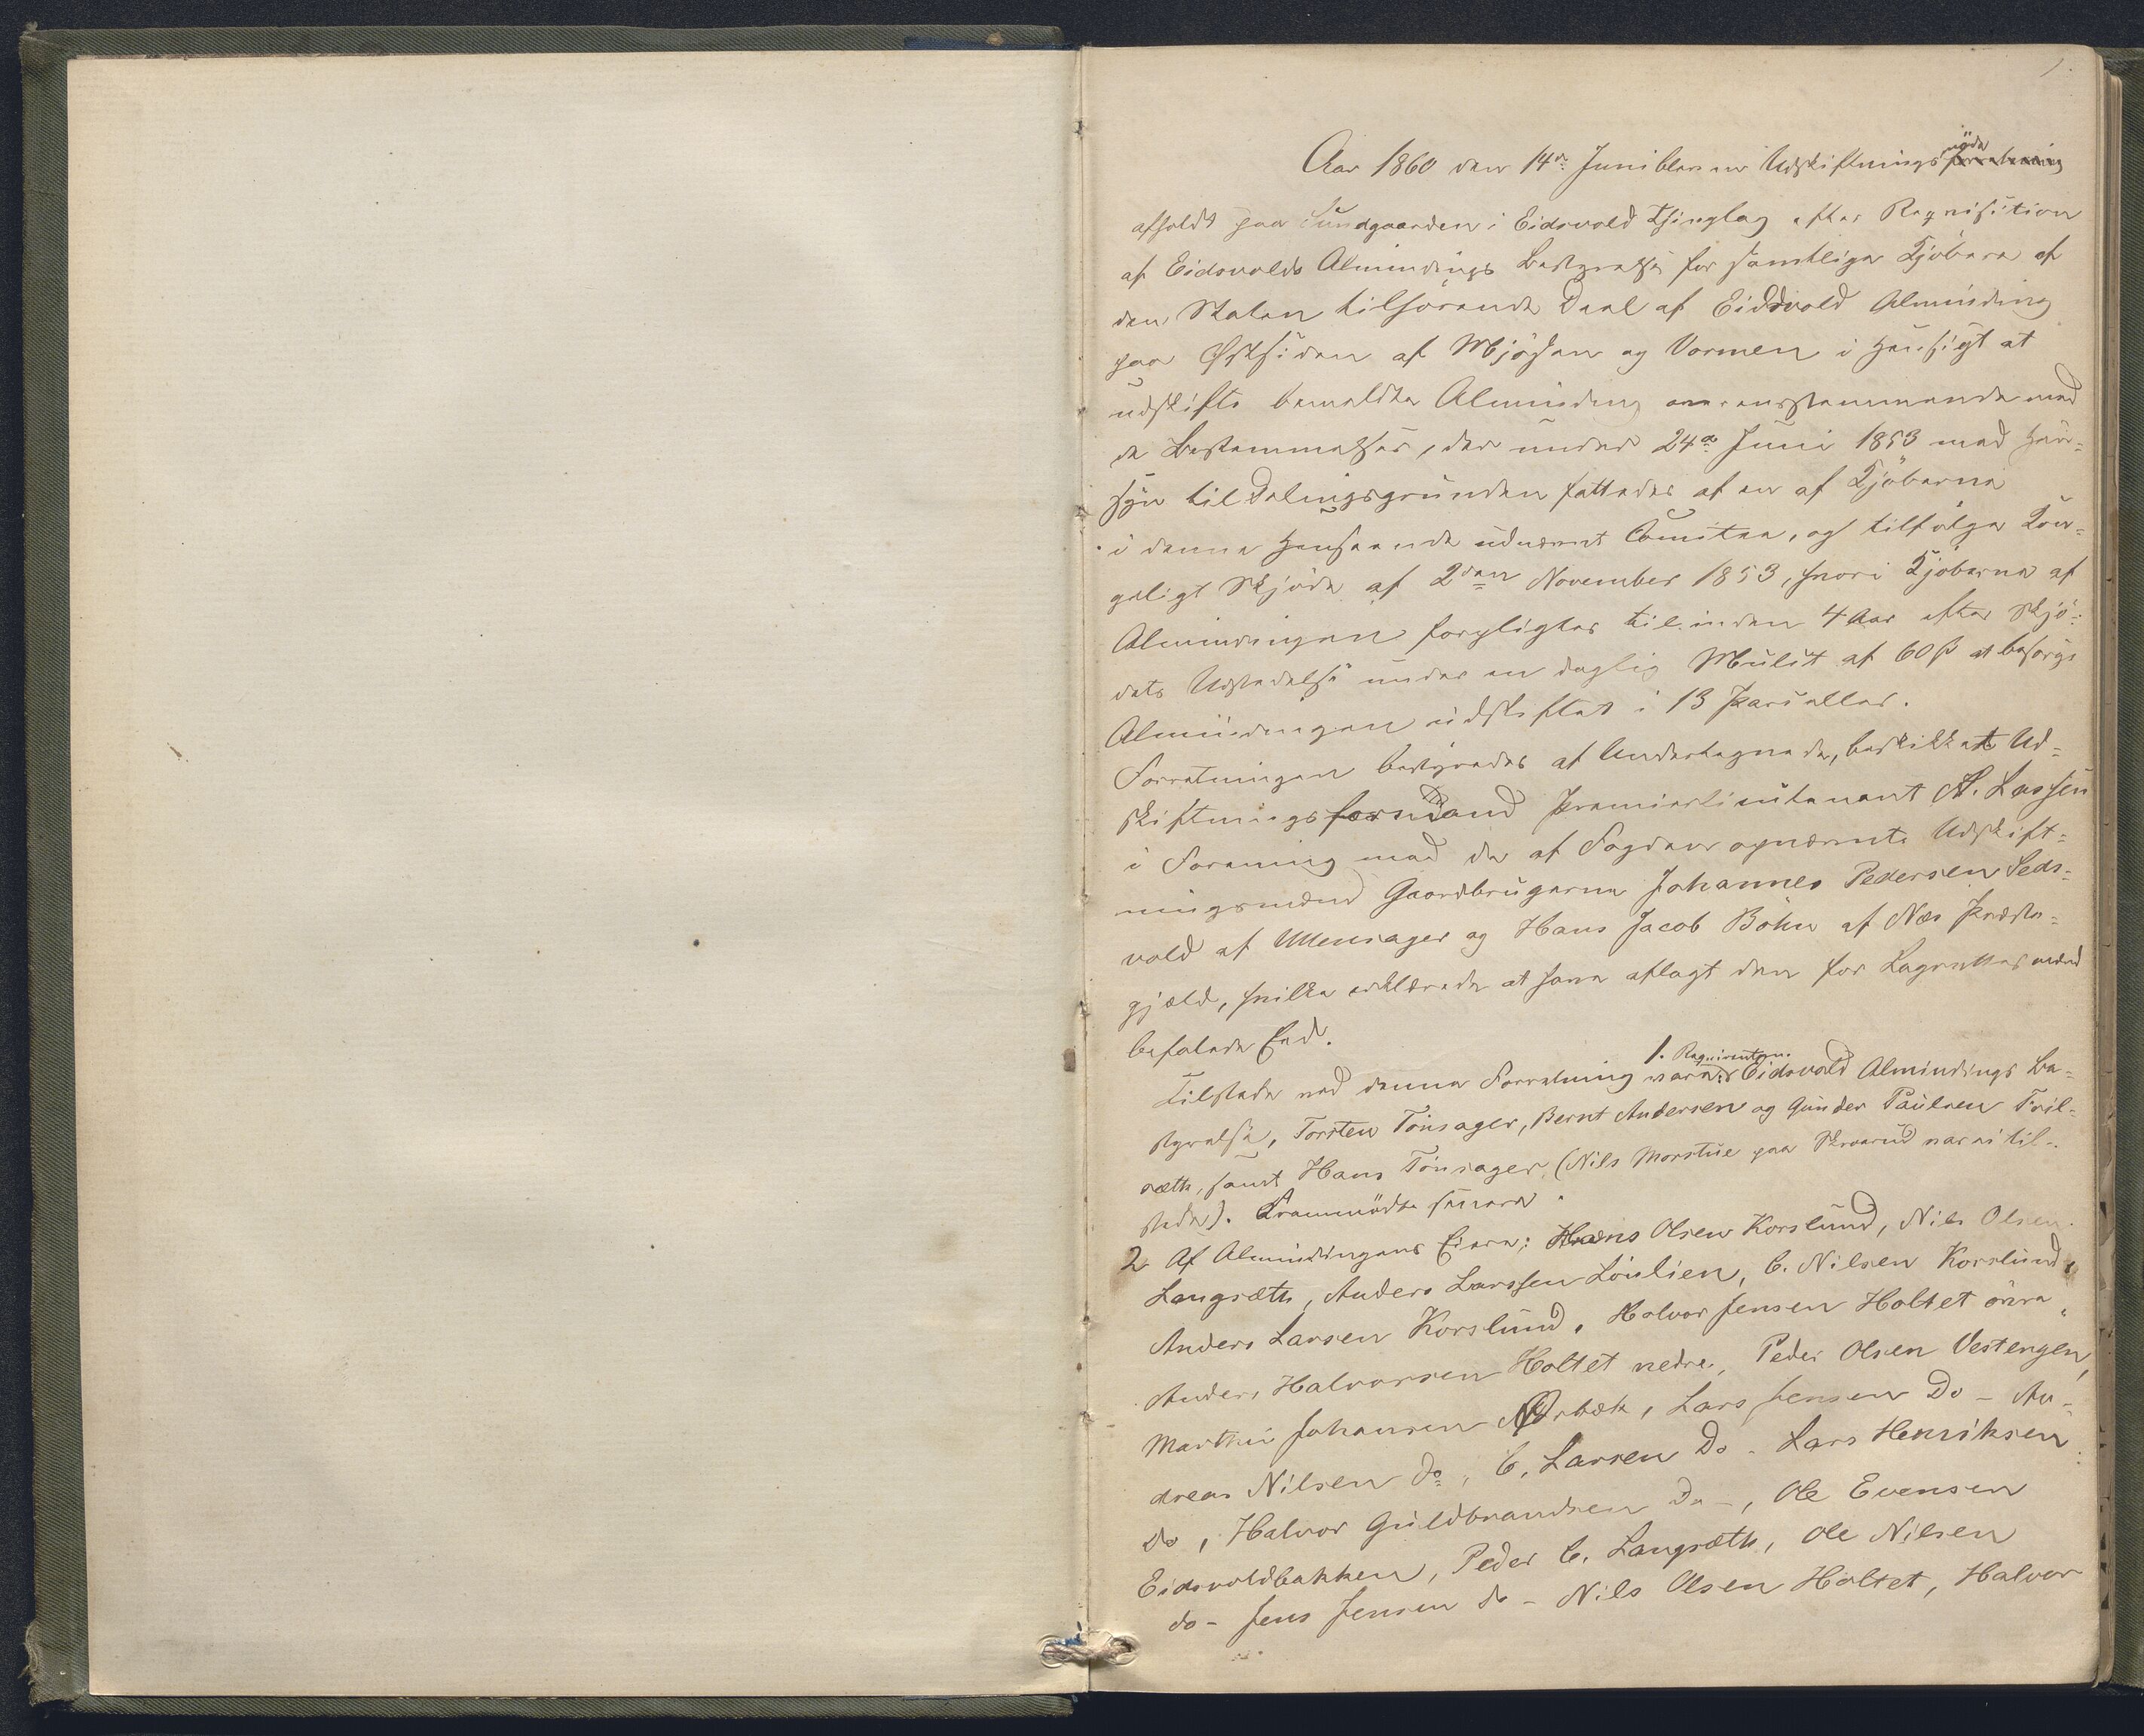 1.
Aar 1860 den 14de Juni blev en Udskiftnings møde forretning
afholdt paa Sundgaarden i Eidsvold Thinglag efter Reqvisition
af Eidsvolds Almindings Bestyrelse for samtlige Kjöbere af
den Staten tilhörende Deel af Eidsvold Alminding
paa Østsiden af Mjösen og Vormen i Hensigt at
udskifte bemeldte Alminding overensstemmende med
de Bestemmelser, der under 24de Juni 1853 med Hen-
syn til Delingsgrunden fattedes af en af Kjöberne
i denne Henseende udnævnt Comitee, og tilfölge Kon-
geligt Skjöde af 2den November 1853, hvori Kjöberne af
Almindingen forpligtes til inden 4 Aar efter Skjö-
dets Udstedelse under en daglig Mulct af 60 ß at besørge
Almindingen udskiftet i 13 Parceller.
Forretningen bestyredes af Undertegnede, beskikket Ud-
skiftningsformand Premierlieutenant A. Lassen
i Forening med de af Fogden opnævnte Udskift-
ningsmænd Gaardbrugerne Johannes Pedersen Seds-
vold af Ullensager og Hans Jacob Böhn af Næs Præste-
gjæld, hvilke erklærede at have aflagt den for Lagrettesmænd
befalede Eed.
Tilstede ved denne Forretning vare: 1. Reqvirenten. Eidsvold Almindings Be-
styrelse, Torsten Tönsager, Bernt Andersen og Gunder Paulsen Træl-
sæth, samt Hans Tönsager (Nils Morstue paa Skrarud var ei til-
stede). Fremmödte senere.
2 Af Almindingens Eiere: Hans Olsen Korslund, Nils Olsen
Langsæth, Anders Larssen Lönlien, C. Nilsen Korslund,
Anders Larsen Korslund, Halvor Jensen Holtet övre,
Anders Halvorsen Holtet nedre, Peder Olsen Vestengen,
Marthin Johansen Ørbæk, Lars Jensen Do - An-
dreas Nilsen do, C. Larsen Do - Lars Henriksen
do, Halvor Guldbrandsen Do -, Ole Evensen
Eidsvoldbakken, Peder C. Langsæth, Ole Nilsen
do - Jens Jensen do - Nils Olsen Holtet, Halvor